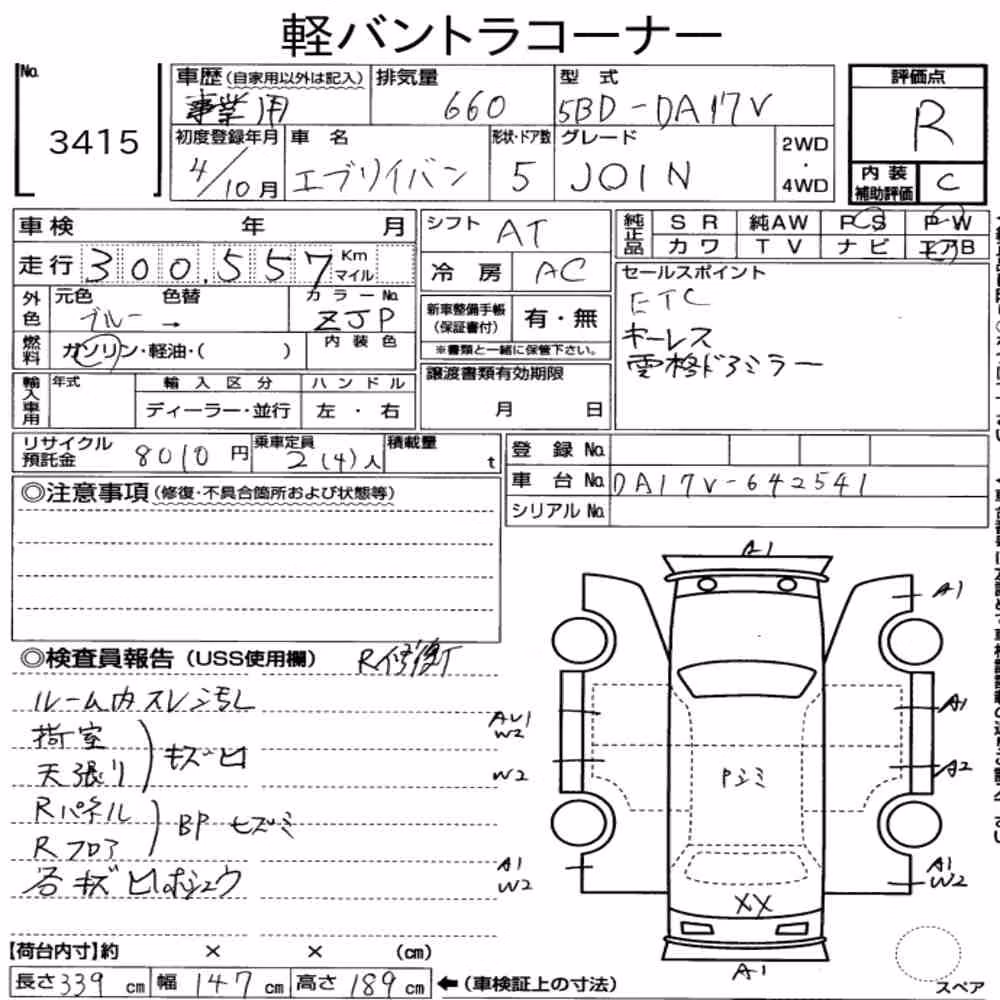 軽バントラコーナー
No.
3415
車歴(自家用以外は記入)
事業用
排気量
660
型 式
5BD-DA17V
評価点
R
初度登録年月
4/10月
車 名
エブリイバン
形状・ドア数
5
グレード
JOIN
2WD
・
4WD
内装
補助評価
C
車検 年 月
走行 300,557 Km
マイル
シフト AT
冷 房 AC
純正品
SR 純AW PS PW
カワ TV ナビ エアB
セールスポイント
ETC
キーレス
電格ドアミラー
外色
元色 色替 カラーNo.
ブルー → ZJP
燃料
ガソリン・軽油・( )
内装色
新車整備手帳
(保証書付)
有・無
※書類と一緒に保管下さい。
輸入車用
年式
輸入区分
ハンドル
ディーラー・並行
左・右
譲渡書類有効期限
月 日
リサイクル
預託金
8010円
乗車定員
2(4)人
積載量
t
登 録 No.
車 台 No. DA17V-642541
シリアル No.
◎注意事項(修復・不具合箇所および状態等)
◎検査員報告(USS使用欄) R修復
ルーム内スレ汚れ
荷室
天張り
キズ凹
Rパネル
Rフロア
BP
各キズ凹
A1
A1
AU1
W2
A1
W2
A2
A1
W2
A1
W2
XX
A1
【荷台内寸】約 × × (cm)
長さ 339 cm 幅 147 cm 高さ 189 cm ←(車検証上の寸法)
スペア